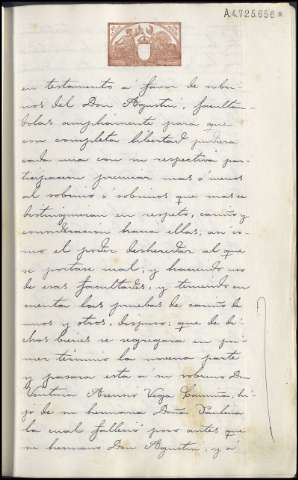 A4.725.656*
en testamento á favor de sobri-
nos del Don Agustin, facultan-
dolas ampliamente para que
con completa libertad pudiera
cada una con su respectiva par-
ticipacion premiar mas ó menos
al sobrino ó sobrinos que mas se
distinguieran en respeto, cariño y
consideracion hacia ellas, asi co-
mo el poder desheredar al que
se portase mal; y haciendo uso
de esas facultades, y teniendo en
cuenta las pruebas de cariño de
unos y otros, dispuso: que de di-
chos bienes se segregara en pri-
mer término la novena parte
y pasara esta a su sobrino Don
Antonio Vega hi-
jo de su hermana Doña
la cual falleció poco antes que
su hermano Don Agustin, y á